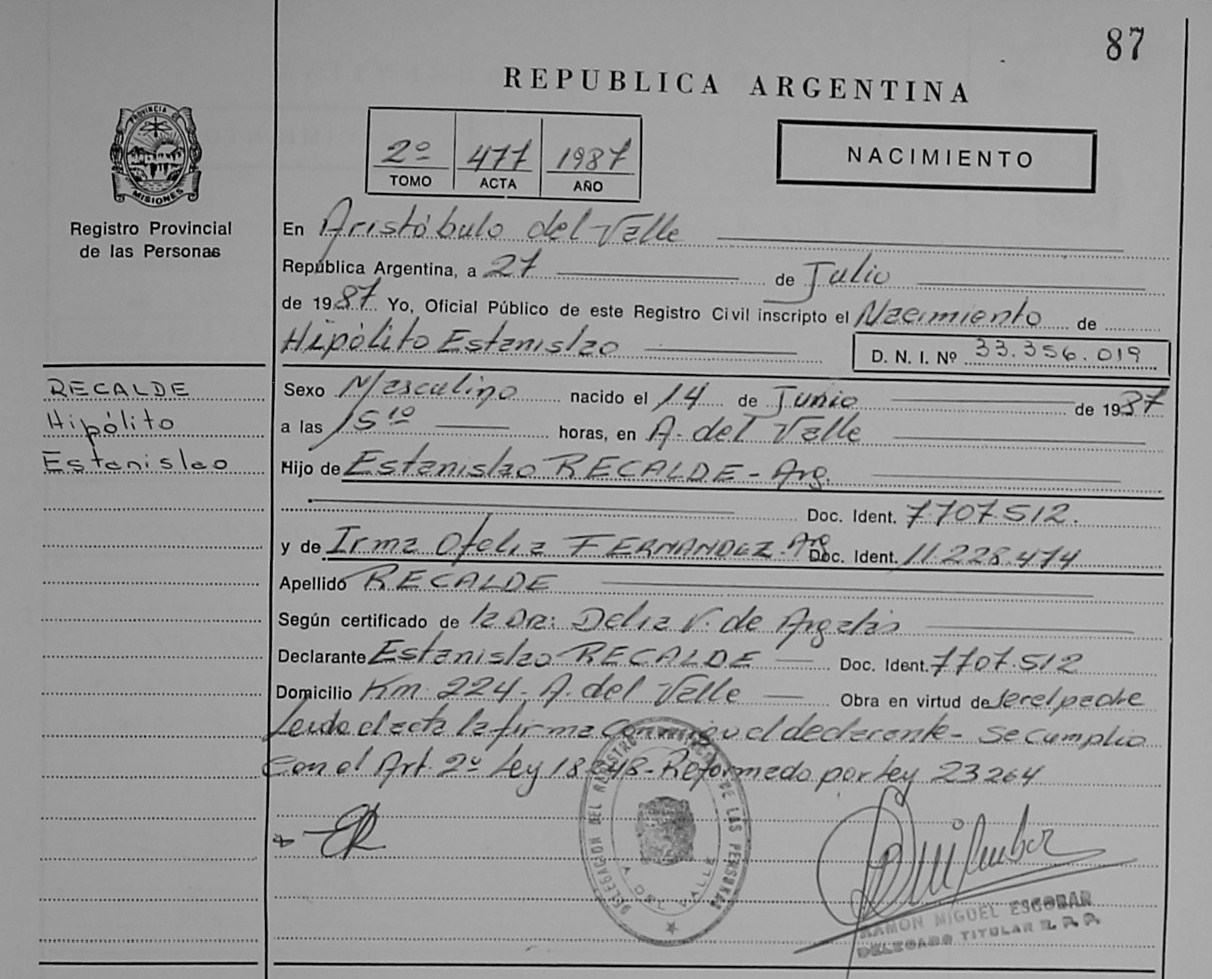 87
REPUBLICA ARGENTINA
PROVINCIA DE
MISIONES
Registro Provincial
de las Personas
2º 477 1987
TOMO ACTA AÑO
NACIMIENTO
En Aristóbulo del Valle
República Argentina, a 27 de Julio
de 1987 Yo, Oficial Público de este Registro Civil inscripto el Nacimiento de
Hipólito Estanislao
D. N. I. Nº 33.356.019
RECALDE
Hipólito
Estanislao
Sexo Masculino nacido el 14 de Junio de 1987
a las 15¹⁰ horas, en A. del Valle
Hijo de Estanislao RECALDE - Arg.
Doc. Ident. 7.707.512.
y de Irma Ofelia FERNANDEZ - Arg Doc. Ident. 11.228.474
Apellido RECALDE
Según certificado de la Dra: Delia V. de
Declarante Estanislao RECALDE Doc. Ident. 7707.512
Domicilio Km 224 - A. del Valle Obra en virtud de ser el padre
Leida el acta la firma conmigo el declarante - Se cumplio
con el Art. 2º Ley 18.248 - Reformado por Ley 23264
ER
DELEGACION DEL REGISTRO PROVINCIAL DE LAS PERSONAS
A. DEL VALLE
RAMON MIGUEL ESCOBAR
DELEGADO TITULAR R. P. P.